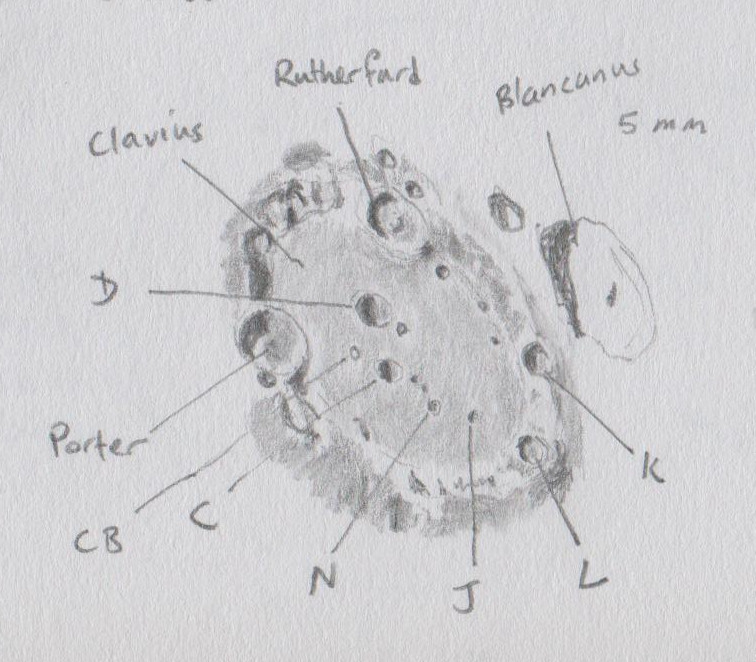 Rutherfurd
Blancanus
5 mm
Clavius
D
Porter
K
CB
C
N
J
L